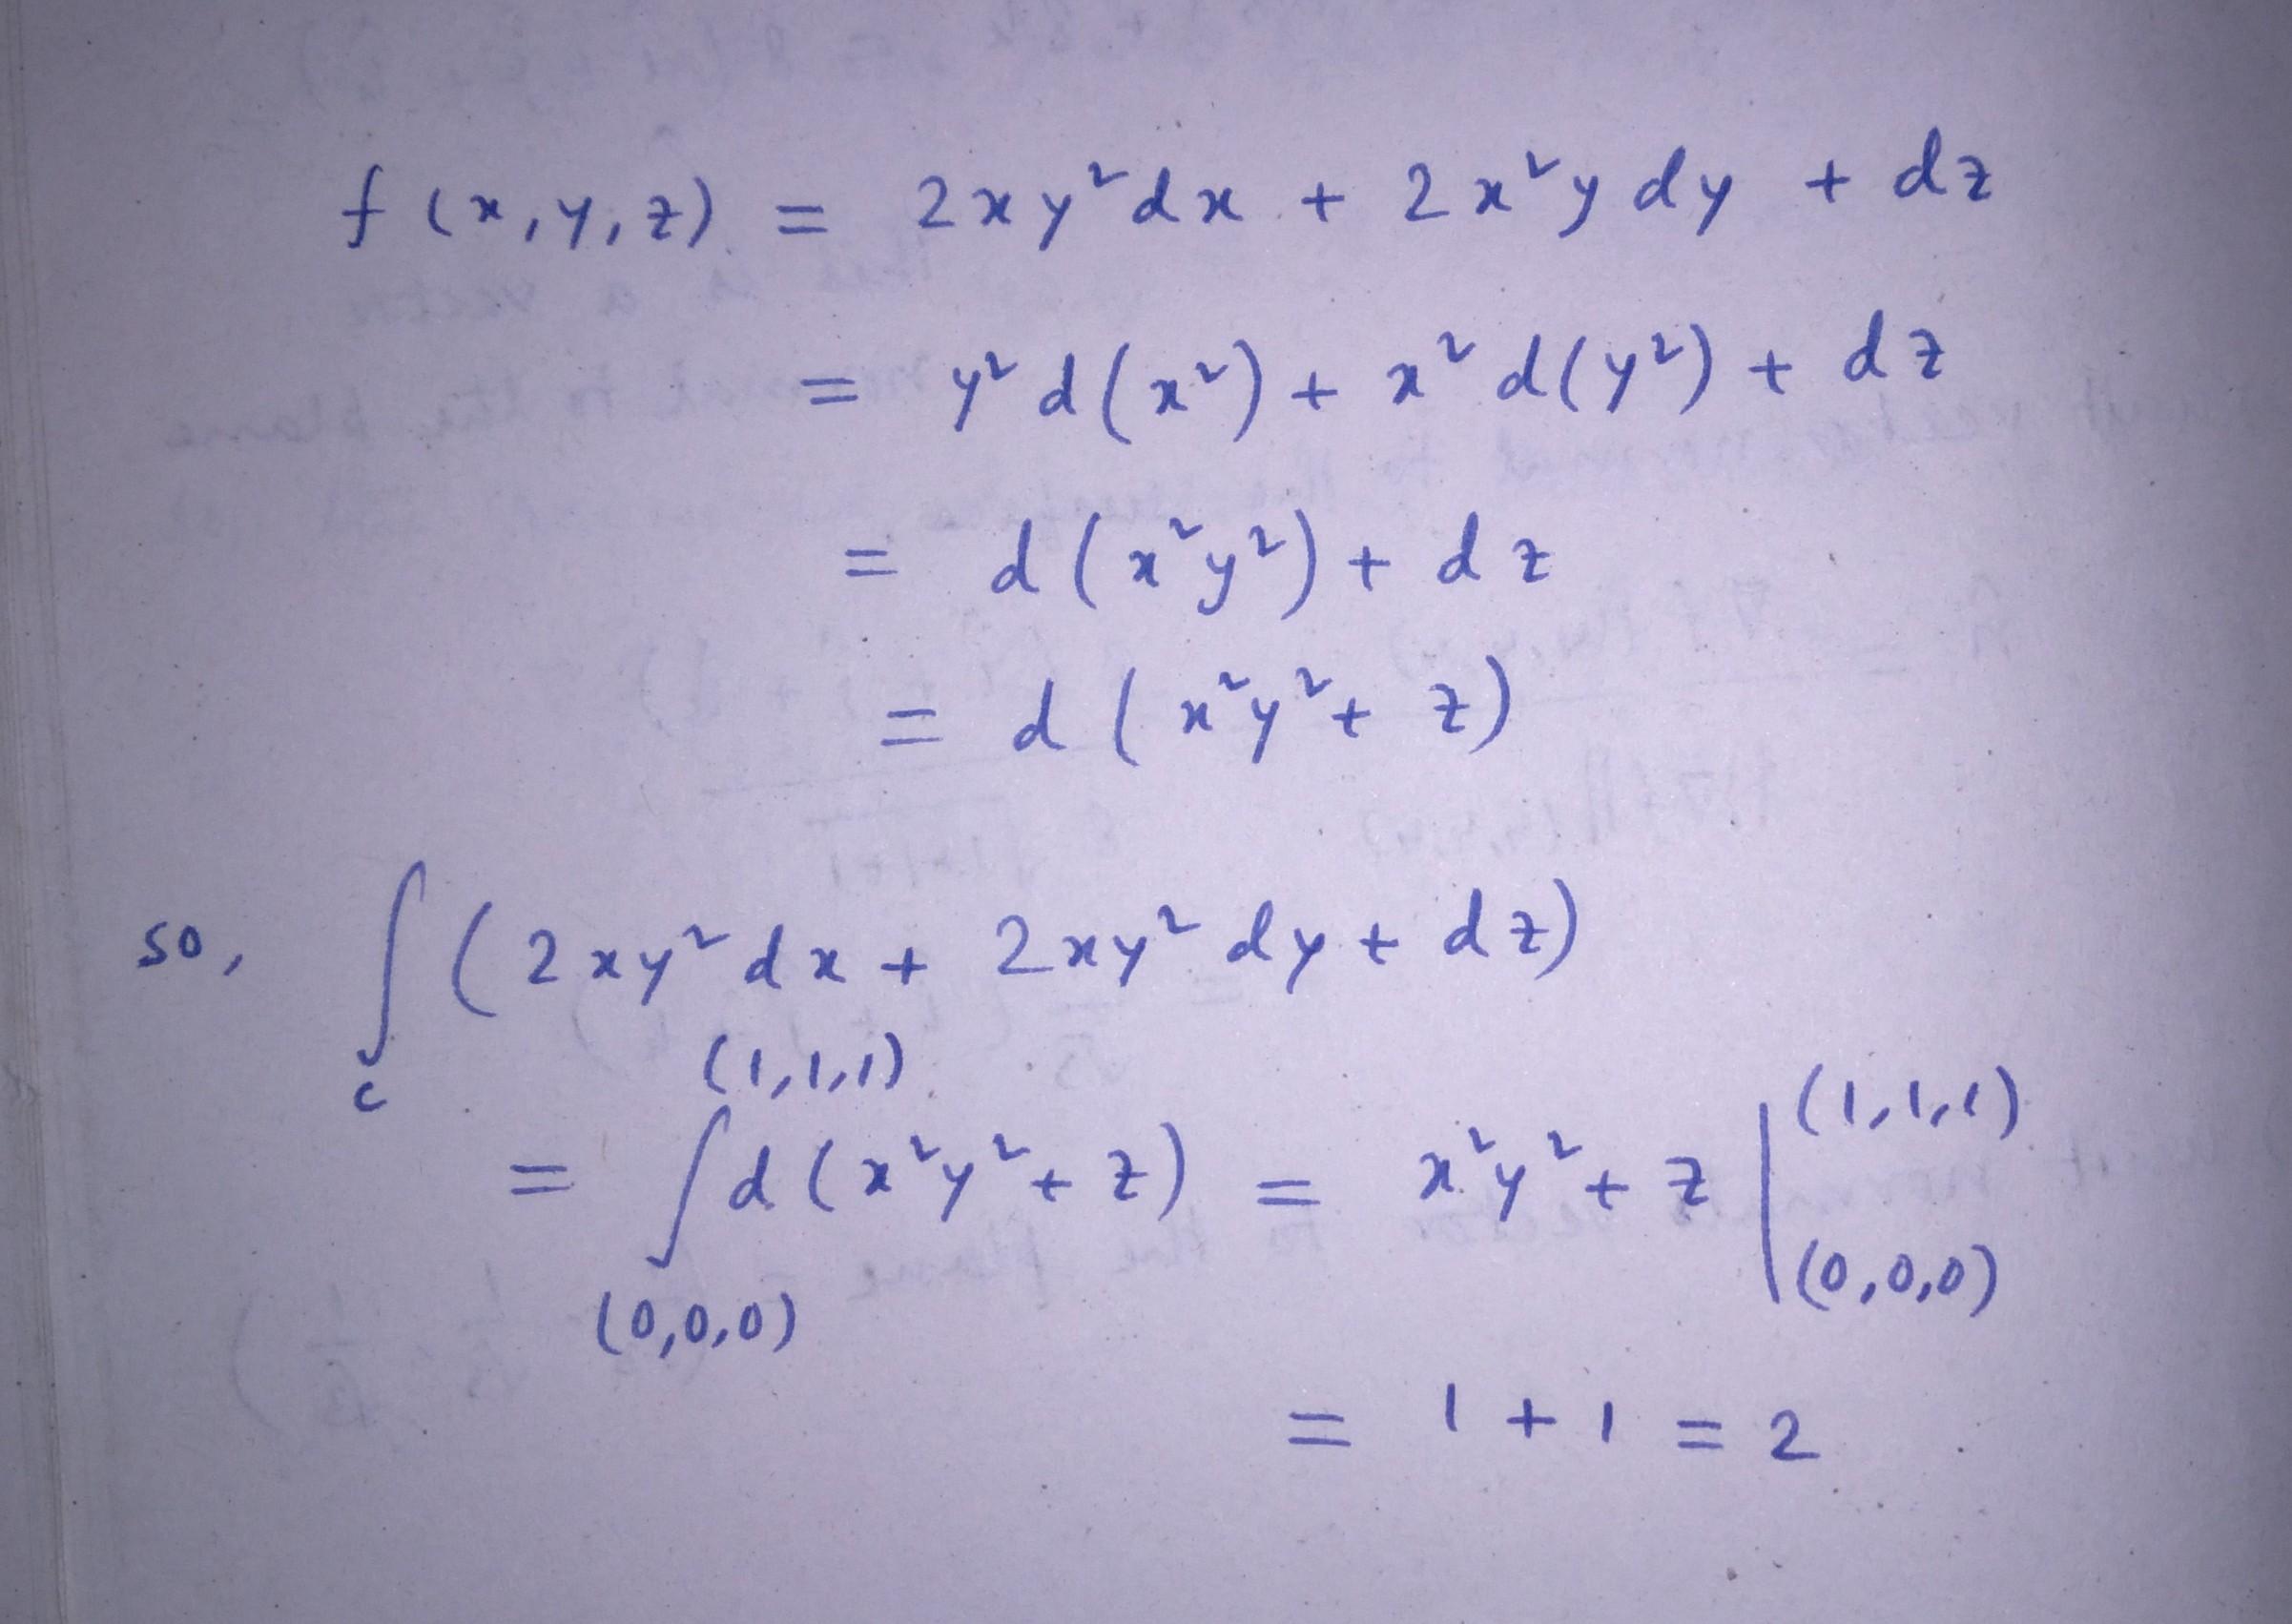 f(x,y,z) = 2xy²dx + 2x²y dy + dz
= y² d(x²) + x² d(y²) + dz
= d(x²y²) + dz
= d(x²y² + z)
so, ∫ (2xy² dx + 2xy² dy + dz)
c
(1,1,1)
= ∫ d(x²y² + z) = x²y² + z | (1,1,1)
(0,0,0)
(0,0,0)
= 1 + 1 = 2